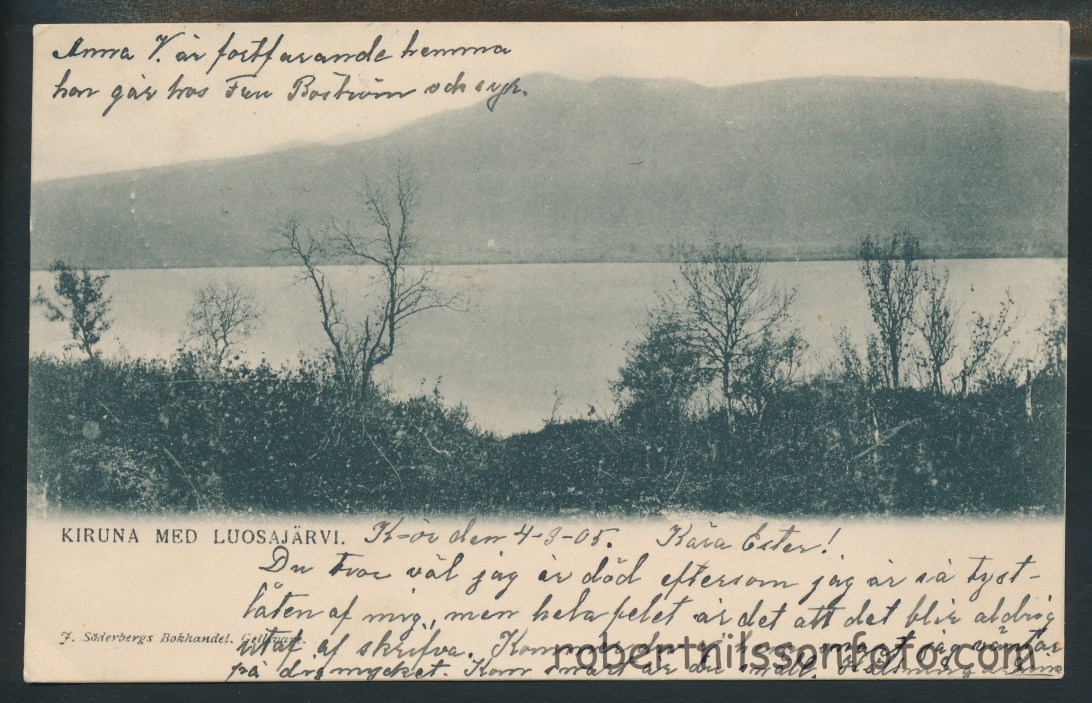 Anna V. är fortfarande hemma
hon går hos Fru Boström och syr.
KIRUNA MED LUOSAJÄRVI. K-ör den 4-3-05. Kära Ester!
Du tror väl jag är död eftersom jag är så tyst-
låten af mig, men hela felet är det att det blir aldrig
utaf af skrifva. Kom jag väntar
F. Söderbergs Bokhandel. Gellivare.
på dig mycket. Kom snart är du snäll.
robertnilssonfoto.com